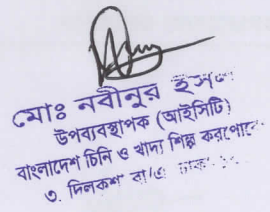 মোঃ নবীনুর ইস
উপব্যবস্থাপক (আইসিটি)
বাংলাদেশ চিনি ও খাদ্য শিল্প করপোরে
৩, দিলকুশা বা/এ, ঢাকা